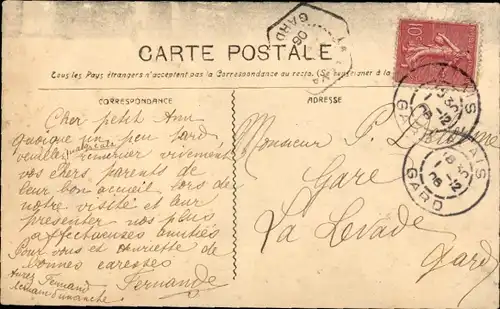 CARTE POSTALE
Tous les Pays étrangers n'acceptent pas la Correspondance au recto. (Se renseigner à la
CORRESPONDANCE
ADRESSE
Cher petit Ami
quoique un peu tard
veuillez remercier vivement
vos chers parents de
leur bon accueil lors de
notre visite et leur
présenter nos plus
affectueuses amitiés
Pour vous et Henriette de
bonnes caresses
Fernande
Monsieur P.
Gare
La Levade
Gard
10
GARD
06
GARD
GARD